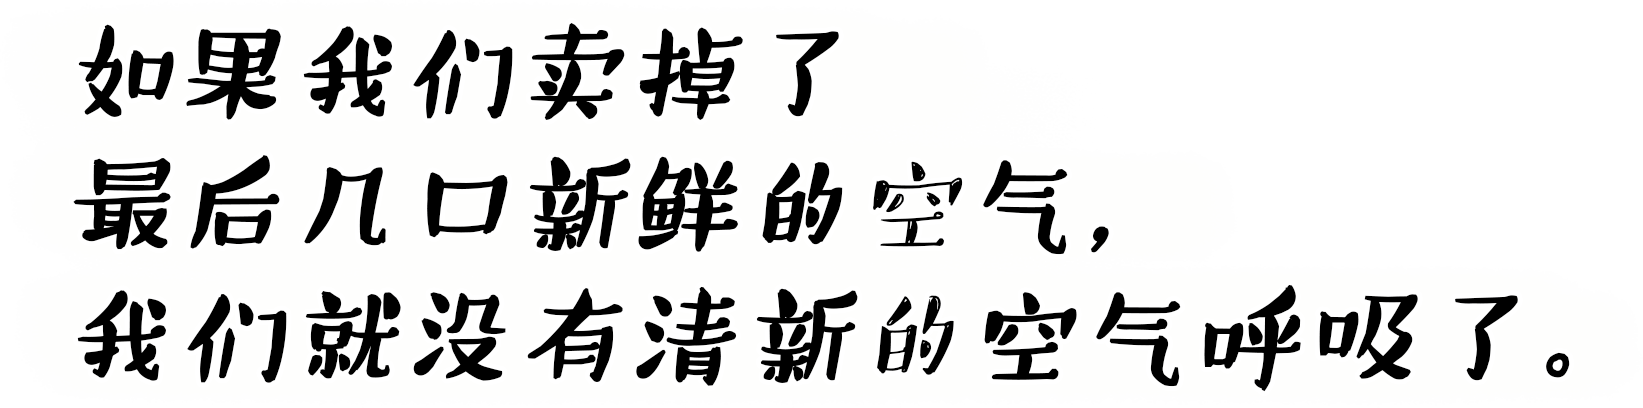 如果我们卖掉了
最后几口新鲜的空气，
我们就没有清新的空气呼吸了。